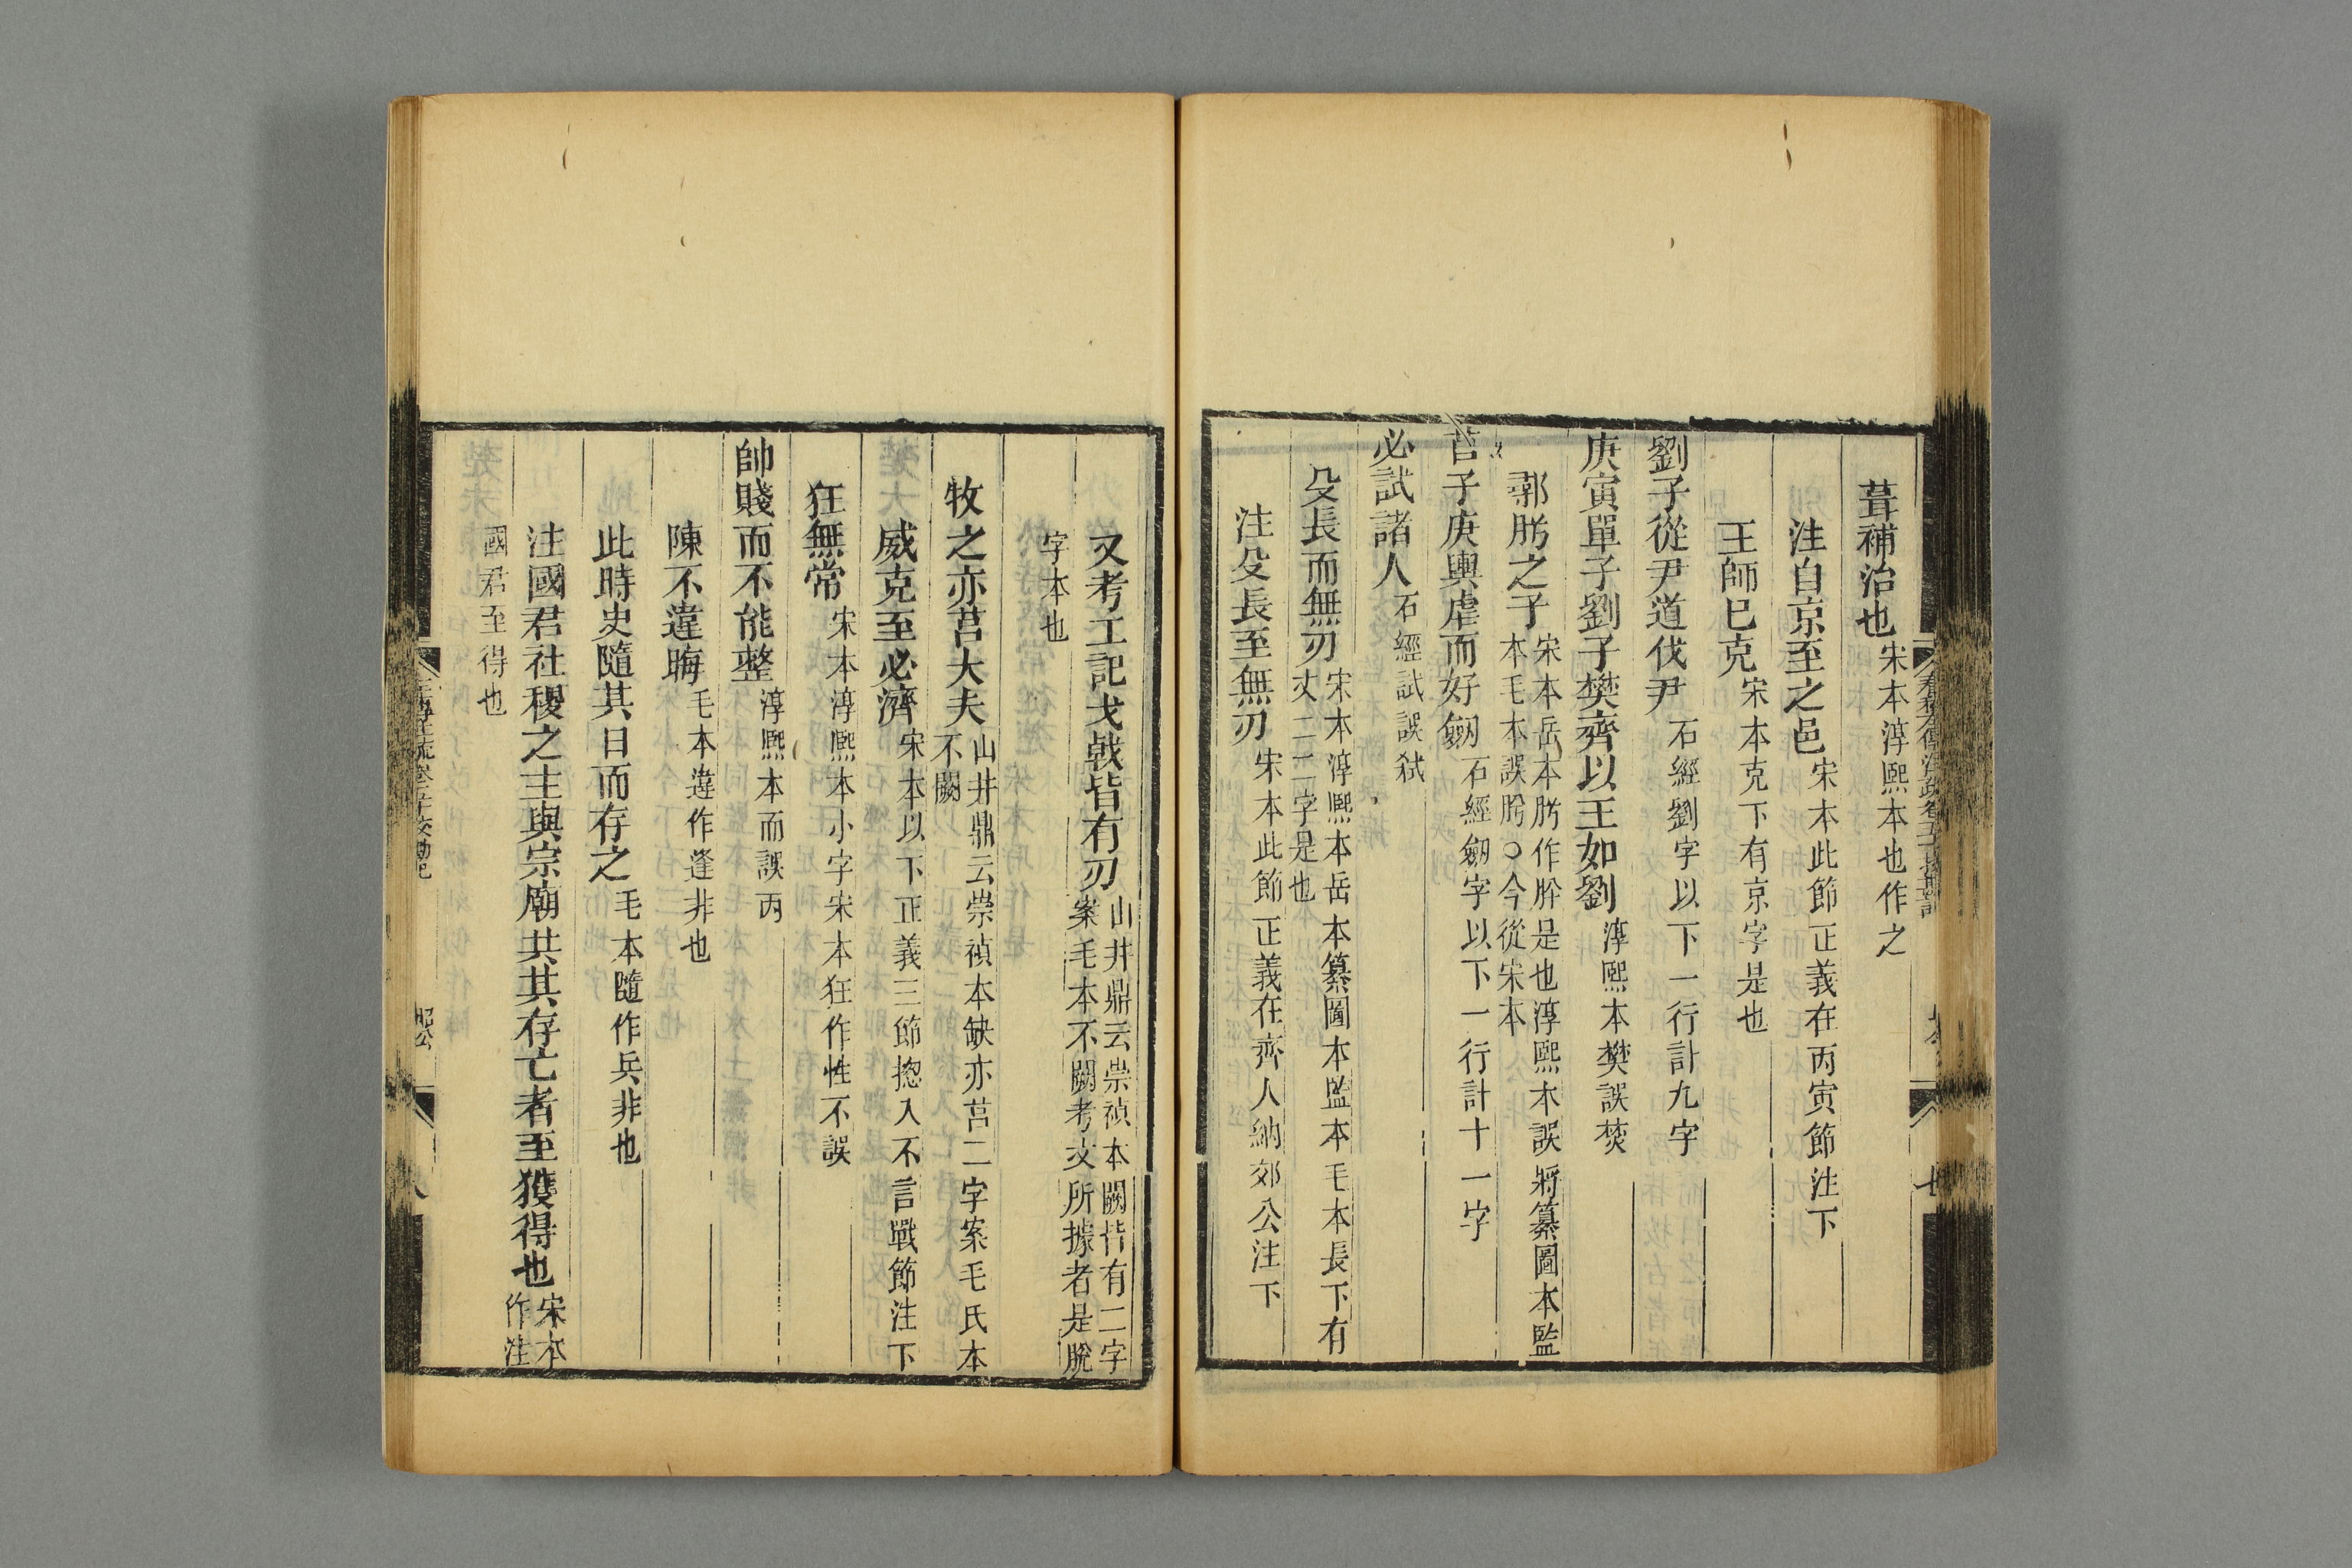 葺補治也宋本淳熙本也作之
注自京至之邑宋本此節正義在丙寅節注下
王師已克宋本克下有京字是也
劉子從尹道伐尹石經劉字以下一行計九字
庚寅單子劉子樊齊以王如劉淳熙本樊誤焚
郭肹之子宋本岳本肹作肸是也淳熙本誤將纂圖本監
本毛本誤肹○今從宋本
莒子庚輿虐而好劒石經劒字以下一行計十一字
必試諸人石經試誤弒
殳長而無刃宋本淳熙本岳本纂圖本監本毛本長下有
丈二二字是也
注殳長至無刃宋本此節正義在齊人納郊公注下
又考工記戈戟皆有刃山井鼎云崇禎本闕皆有二字
案毛本不闕考文所據者是脫
字本也
牧之亦莒大夫山井鼎云崇禎本缺亦莒二字案毛氏本
不闕
威克至必濟宋本以下正義三節揔入不言戰節注下
狂無常宋本淳熙本小字宋本狂作性不誤
帥賤而不能整淳熙本而誤丙
陳不違晦毛本違作逢非也
此時史隨其日而存之毛本隨作兵非也
注國君社稷之主與宗廟共其存亡者至獲得也宋本
作注
國君至得也